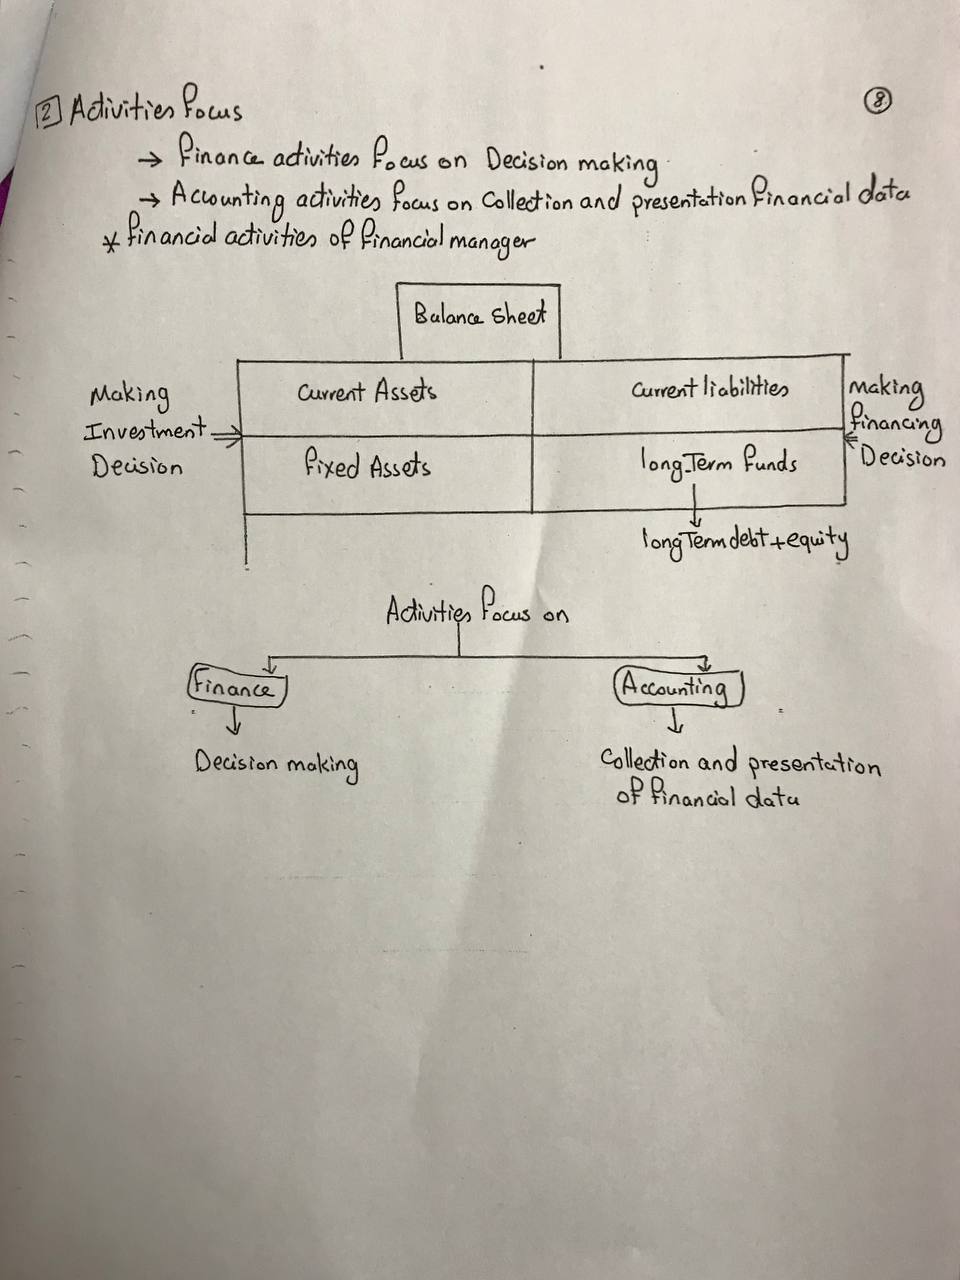 2 Activities focus
8
→ finance activities focus on Decision making
→ Accounting activities focus on Collection and presentation financial data
* financial activities of financial manager
Balance Sheet
Making Investment Decision
Current Assets
Current liabilities
Making financing Decision
fixed Assets
long-Term funds
long Term debt + equity
Activities focus on
Finance
Accounting
Decision making
Collection and presentation
of financial data